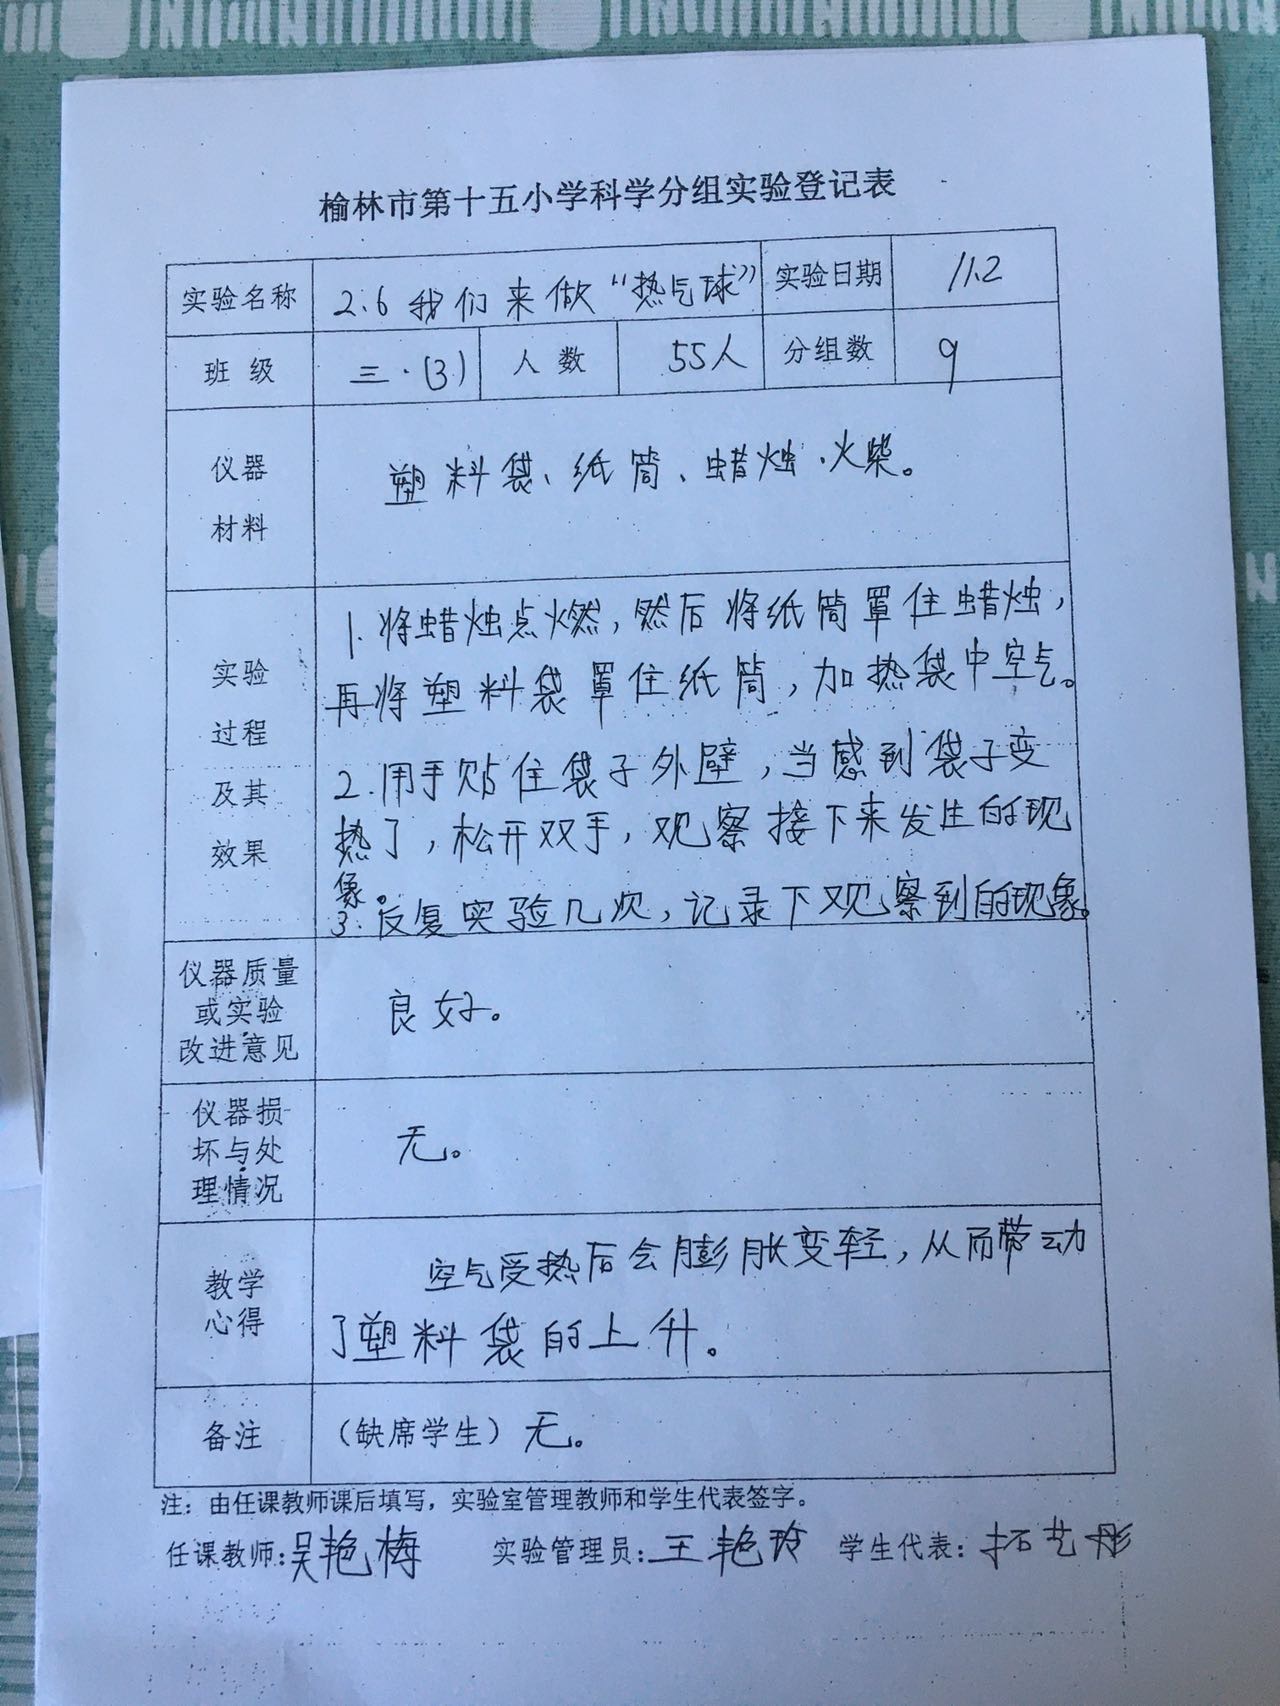 榆林市第十五小学科学分组实验登记表
实验名称 2.6 我们来做“热气球” 实验日期 11.2
班 级 三.(3) 人 数 55人 分组数 9
仪器
材料
塑料袋、纸筒、蜡烛、火柴。
实验
过程
及其
效果
1.将蜡烛点燃,然后将纸筒罩住蜡烛,
再将塑料袋罩住纸筒,加热袋中空气。
2.用手贴住袋子外壁,当感到袋子变
热了,松开双手,观察接下来发生的现
象。
3.反复实验几次,记录下观察到的现象。
仪器质量
或实验
改进意见
良好。
仪器损
坏与处
理情况
无。
教学
心得
空气受热后会膨胀变轻,从而带动
了塑料袋的上升。
备注 (缺席学生)无。
注:由任课教师课后填写,实验室管理教师和学生代表签字。
任课教师:吴艳梅 实验管理员:王艳玲 学生代表:拓艺彤